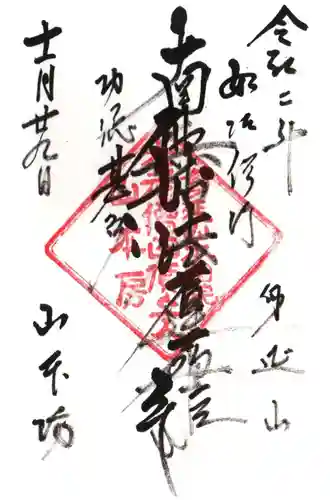 令和二年
如法修行
身延山
南無妙法蓮華経
功徳甚多
十一月廿九日
山本坊